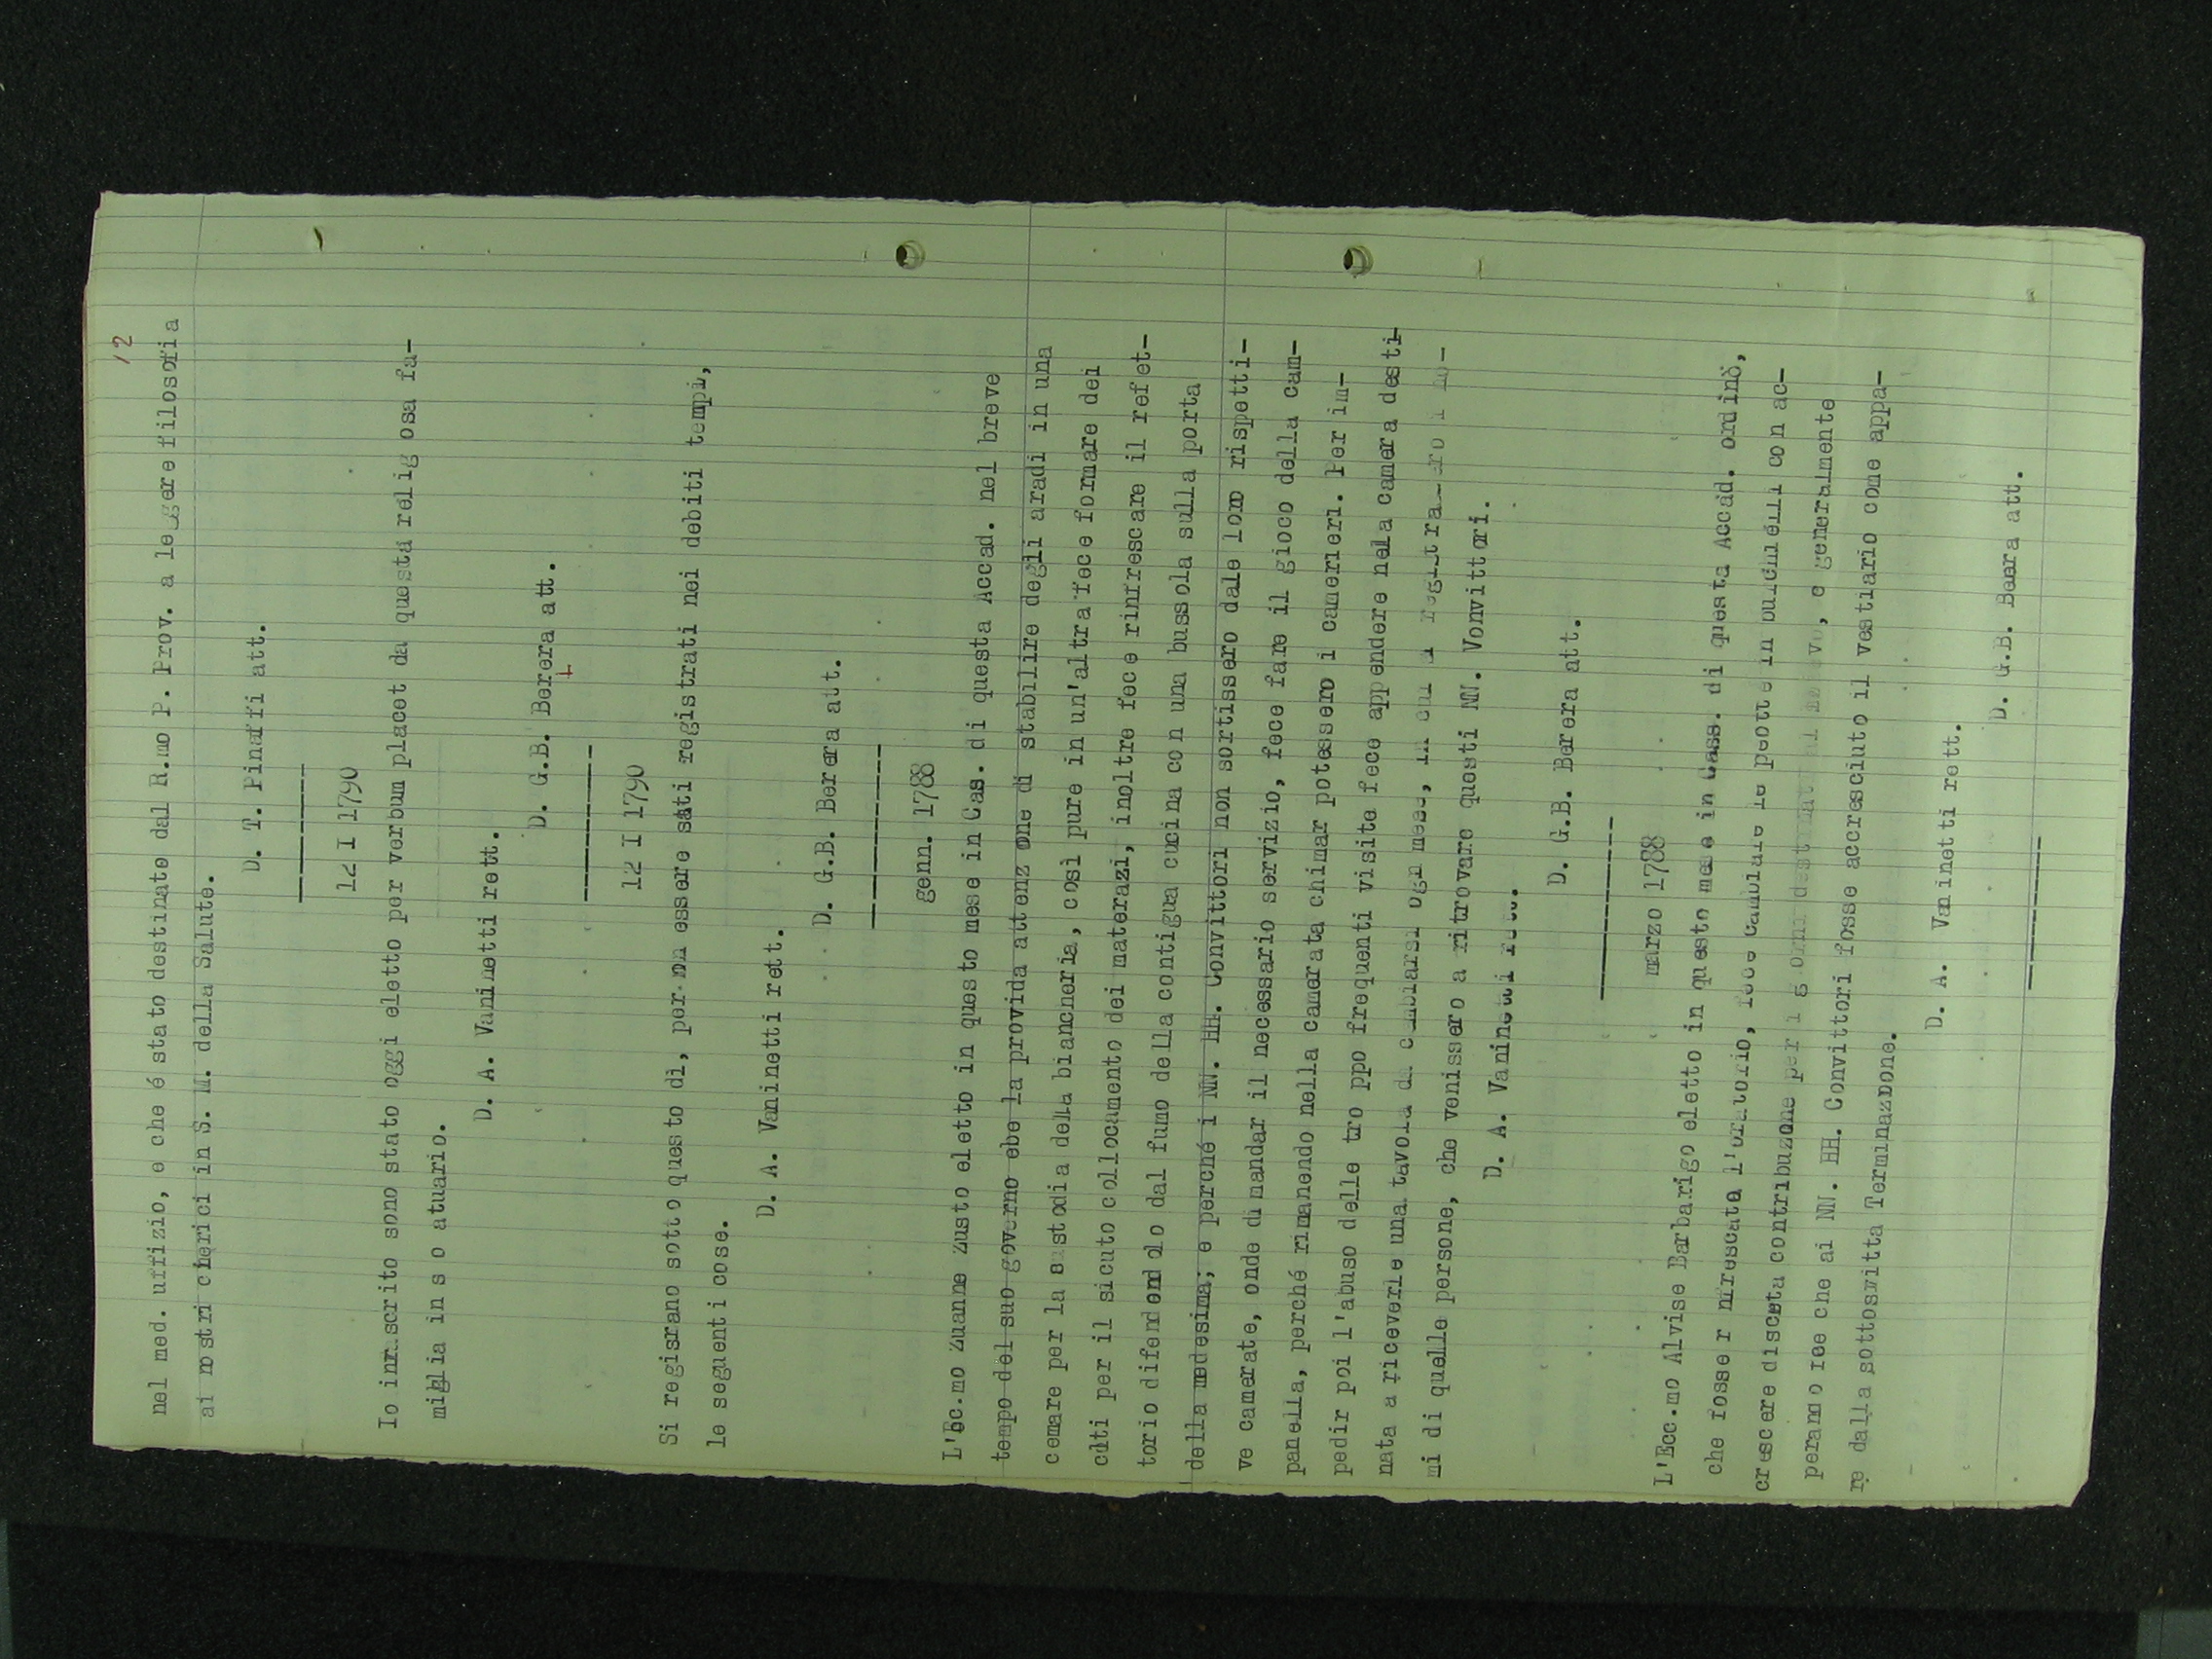 12
nel med. uffizio, e che é stato destinato dal R.mo P. Prov. a leggere filosofia
ai nostri cherici in S. M. della Salute.
D. T. Pinaffi att.
12 I 1790
Io infrascrito sono stato oggi eletto per verbum placet da questa relig osa fa-
miglia in s o atuario.
D. A. Vaninetti rett.
D. G.B. Berera att.
12 I 1790
Si regisrano sotto questo dì, per non essere stati registrati nei debiti tempi,
le seguenti cose.
D. A. Vaninetti rett.
D. G.B. Berera att.
genn. 1788
L'Ecc.mo Zuanne Zusto eletto in questo mese in Cas. di questa Accad. nel breve
tempo del suo governo ebe la provida attenz one di stabilire degli aradi in una
cemare per la custodia della biancheria, così pure in un'altra fece formare dei
colti per il sicuto collocamento dei materazi, inoltre fece rinfrescare il refet-
torio difendendolo dal fumo della contigua cucina con una bussola sulla porta
della medesima; e perché i NN. HH. Convittori non sortissero dale loro rispetti-
ve camerate, onde dimandar il necessario servizio, fece fare il gioco della cam-
panella, perché rimanendo nella camerata chimar potessero i camerieri. Per im-
pedir poi l'abuso delle tro ppo frequenti visite fece appendere nella camera desti-
nata a riceverle una tavola da cambiarsi ogni mese, in cui
mi di quelle persone, che venissero a ritrovare questi NN. Vonvittori.
D. A. Vaninetti rett.
D. G.B. Berera att.
marzo 1788
L'Ecc.mo Alvise Barbarigo eletto in questo mese in Cass. di questa Accad. ordinò,
che fosse r nfrescata l'oratorio, fece cambiare le peotte in buchielli con ac-
crescere disceta contribuzone per i g orni destinati al , e generalmente
perando ree che ai NN. HH. Convittori fosse accresciuto il vestiario come appa-
re dalla sottoswitta Terminaznone.
D. A. Vaninetti rett.
D. G.B. Beera att.